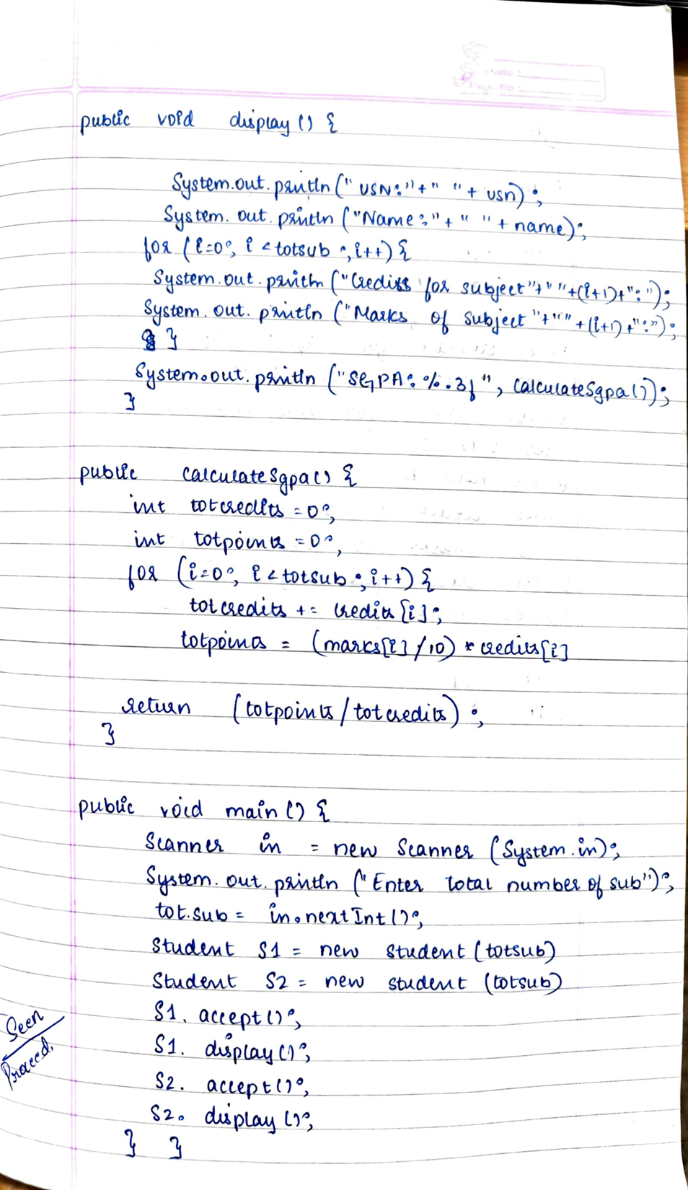 public void display () {
System.out.println (" USN:"+" "+ usn) ;
System. out. println ("Name:"+" "+name);
for (i=0; i < totsub ;i++) {
System.out.println ("Credits for subject"+" "+(i+1)+":");
System. out. println ("Marks of subject "+" "+(i+1)+":");
}
System.out. println ("SGPA: %.3f", calculateSgpa());
}
public calculateSgpa() {
int totcredits = 0;
int totpoints = 0;
for (i=0; i < totsub ;i++) {
totcredits += credits [i];
totpoints = (marks[i] /10) * credits[i]
return (totpoints / totcredits) ;
}
public void main () {
Scanner in = new Scanner (System.in);
System. out. println ("Enter total number of sub");
tot.sub = in.nextInt ();
Student S1 = new student (totsub)
Student S2 = new student (totsub)
S1. accept ();
S1. display ();
S2. accept ();
S2. display ();
} }
Seen
Proceed.